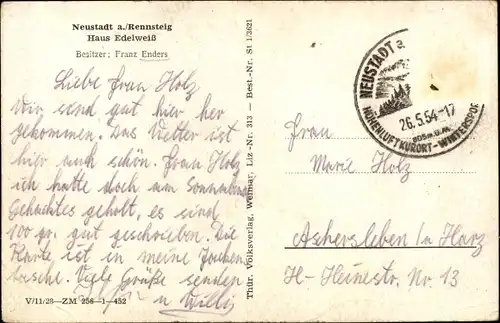 Neustadt a./Rennsteig
Haus Edelweiß
Besitzer: Franz Enders
Liebe Frau Holz
Wir send gut hier her
gekommen. Das Wetter ist
hier auch schön. Frau Holz
ich hatte doch am Sonnabend
Gehacktes geholt, es sind
100 gr. gut geschrieben. Die
Karte ist in meine Jacken
tasche. Viele Grüße senden
u Willi
V/11/28—ZM 256—1—452
Thür. Volksverlag, Weimar, Liz-Nr. 313 — Best.-Nr. St 1/3621
NEUSTADT a.
26.5.54-17
805m ü.M.
HÖHENLUFTKURORT-WINTERSPORT
Frau
Marie Holz
Aschersleben /a Harz
H-Heinestr. Nr. 13